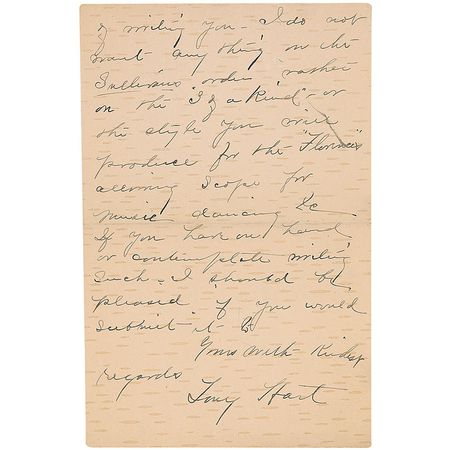 of writing you - I do not
want any thing on the
Sullivans order rather
on the "3 of a Kind" - or
the style you will
produce for the "Florences"
allowing scope for
music dancing &c
If you have on hand
or contemplate writing
such - I should be
pleased if you would
submit it
Yours with Kindest
regards
Tony Hart